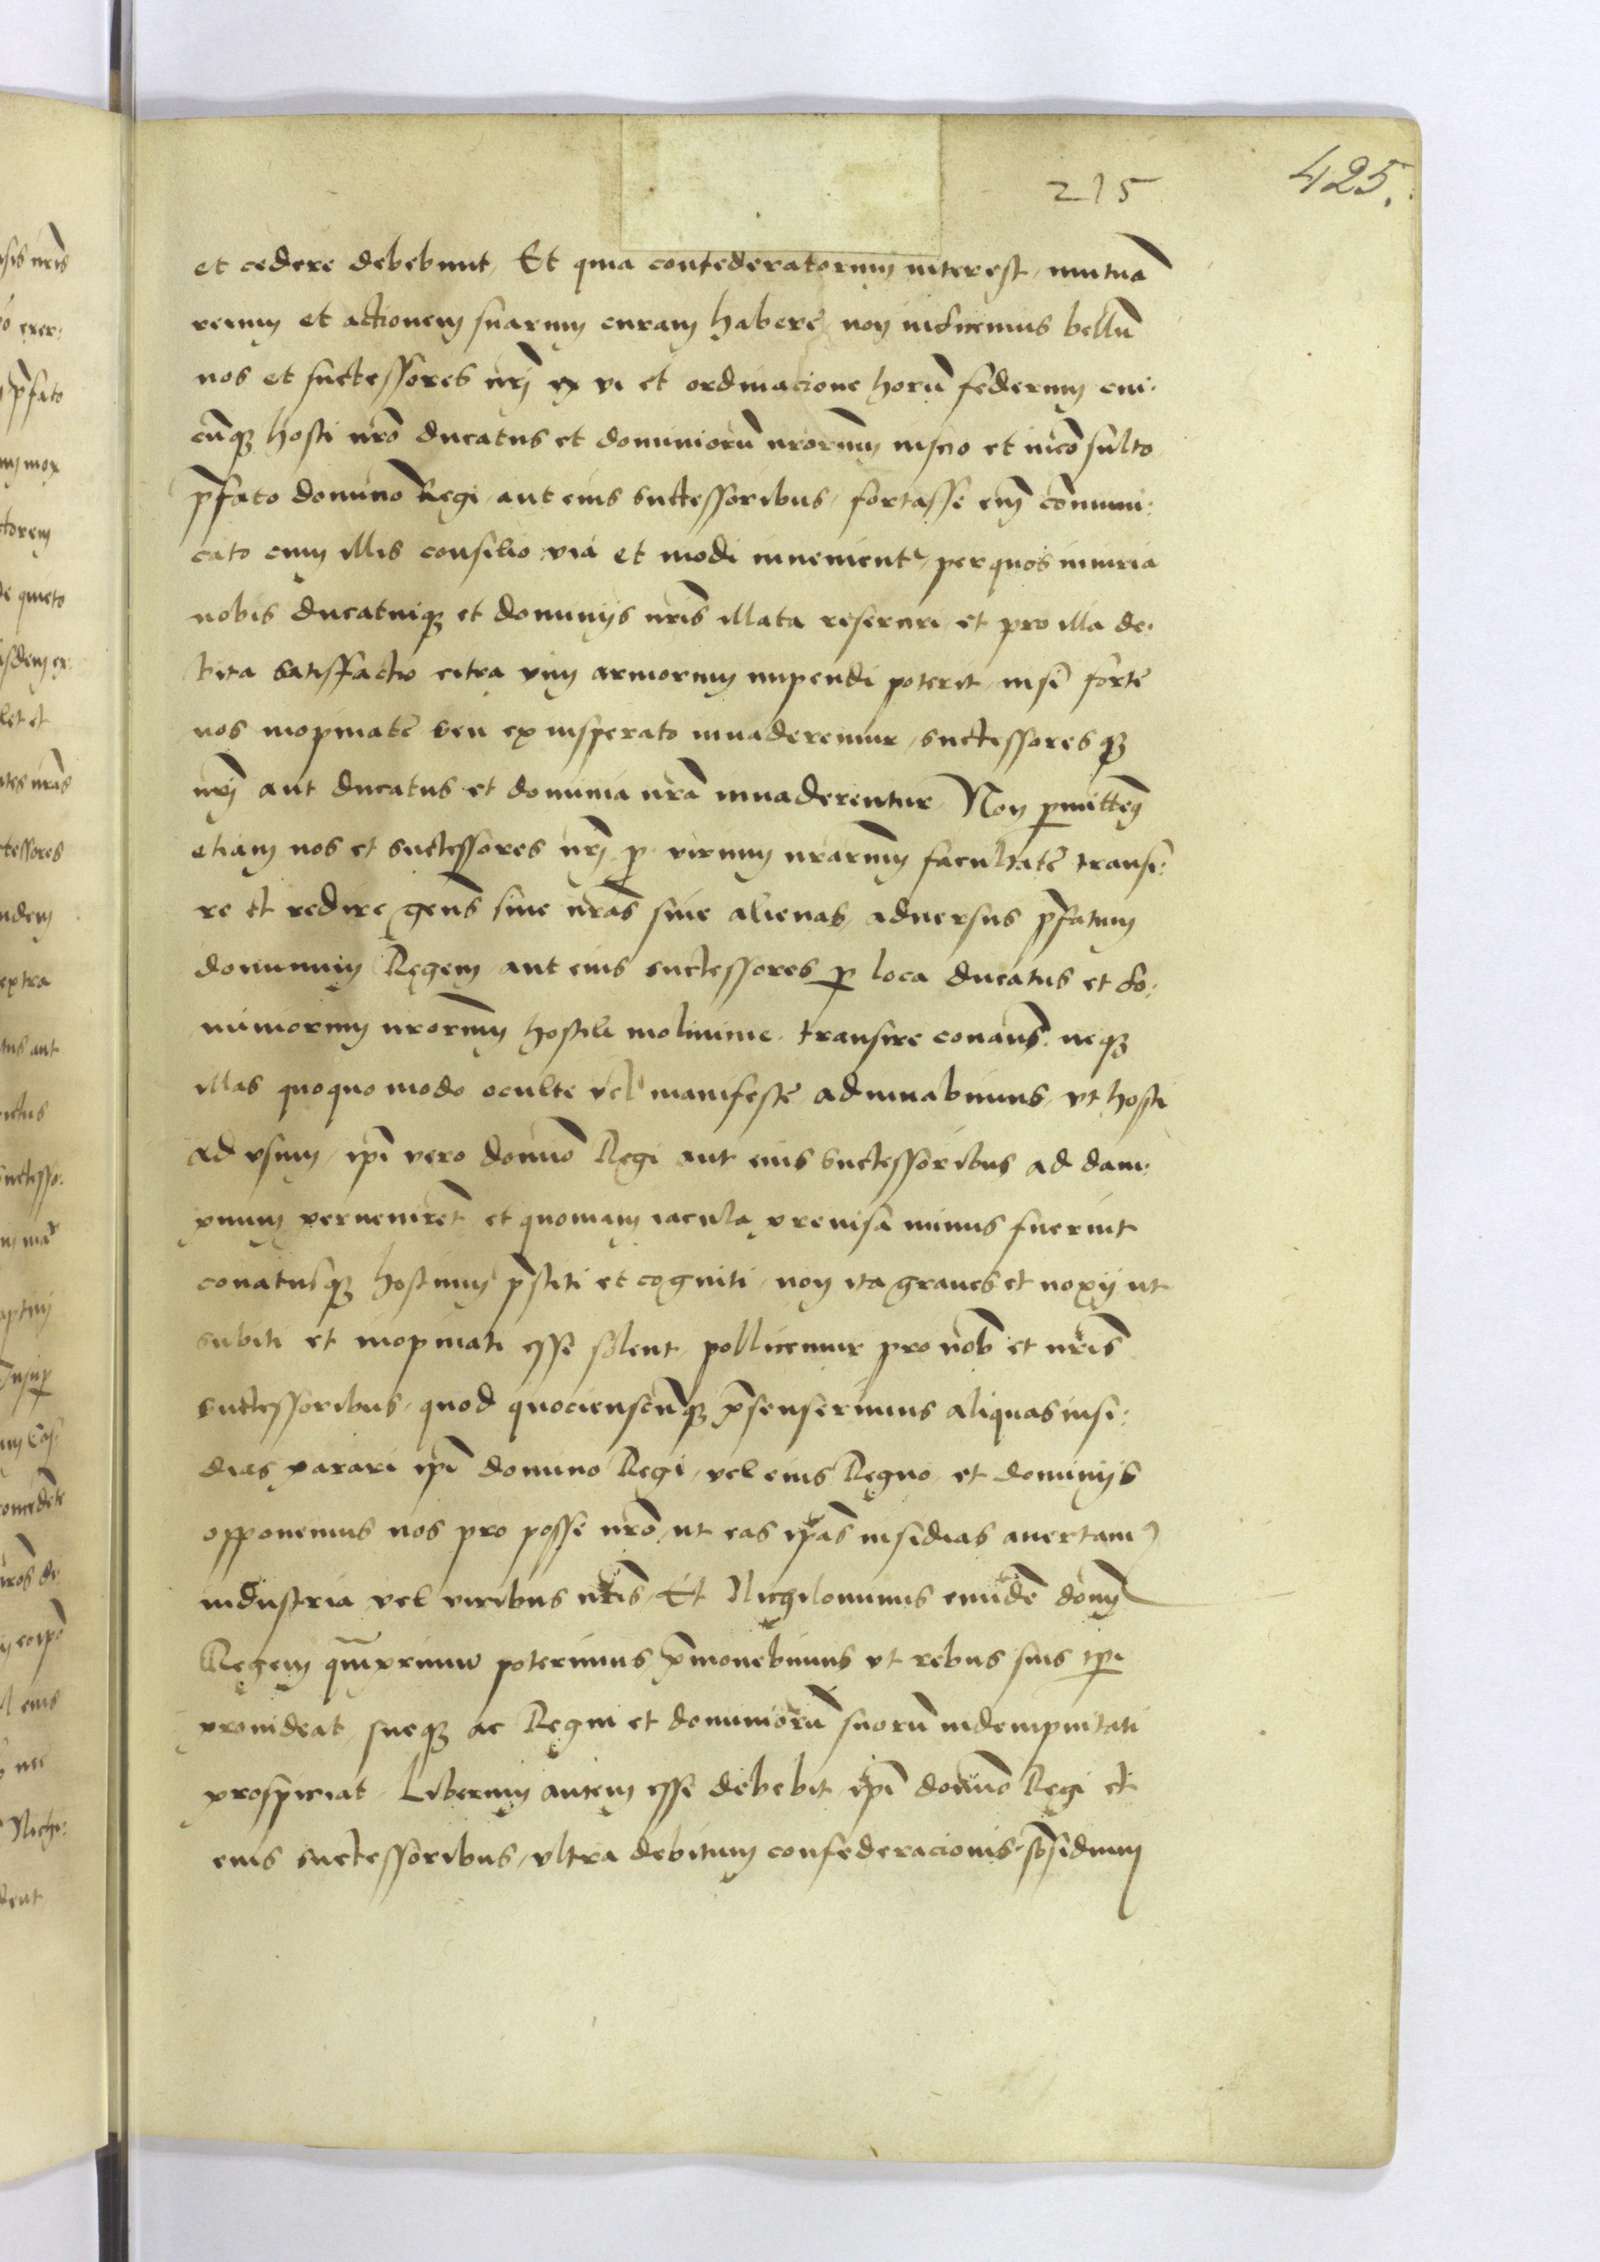 425.
215
et cedere debebunt, Et quia confederatorum interest, mutuā
rerum et actionem suarum curam habere, non indicemus bellū
nos et successores nr̄i ex vi et ordinacione horū federum cui:
cūqȝ hosti nr̄o ducatus et dominiorū nr̄orum inscio et incōsulto
p̄fato domino Regi aut eius successoribus, fortasse em̄ cōmuni:
cato cum illis consilio via et modi invenient̄, per quos iniuria
nobis ducatuiqȝ et dominijs nr̄is illata reserciri et pro illa de:
bita satisffactio citra vim armorum impendi poterit, nisi forte
nos inopinatē seu ex insperato invaderemur, successoresqȝ
nr̄j aut ducatus et dominia nr̄a invaderentur, Non p̄mittem̄
etiam nos et successores nr̄j p̄ virium nr̄arum facultatē transi:
re et redire gen̄s sive nr̄as sive alienas, adversus p̄fatum
dominum Regem aut eius successores p̄ loca ducatus et do:
miniorum nr̄orum hostili molimine transire conan̄s, neqȝ
illas quoquo modo oculte vel manifeste adiuvabimus, vt hosti
ad vsum, ip̄i vero domīo Regi aut eius successoribus ad dam:
pnum perveniret̄ et quoniam iacula previsa minus feriunt
conatusqȝ hostium p̄sciti et cogniti, non ita graves et noxij ut
subiti et inopinati esse solent, pollicemur pro nob̄ et nr̄is
successoribus, quod quocienscūqȝ p̄senserimus aliquas insi:
dias parari ip̄i domino Regi, vel eius Regno, et dominijs
opponemus nos pro posse nr̄o, ut eas ip̄as insidias avertam⁹
industria vel viribus nr̄is, Et Nichilominus eundē dom̄
Regem qm̄primum poterimus p̄monebimus vt rebus suis ip̄e
provideat sueqȝ ac Regni et dominiorū suorū indempnitati
prospiciat, Liberum autem esse debebit ip̄i domīo Regi et
eius successoribus, vltra debitum confederacionis s̄bsidium